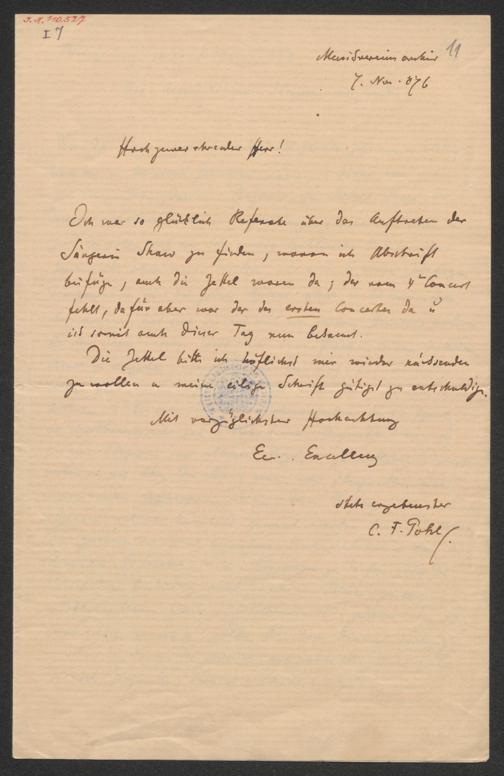 J.N. 110.527
I 7
11
Musikvereinsarchiv
7. Nov. 876
Hochzuverehrender Herr!
Ich war so glücklich Referate über das Auftreten der
Sängerin Shaw zu finden, wovon ich Abschrift
beifüge, auch die Zettel waren da; der vom 4t Concert
fehlt, dafür aber war der des ersten Concertes da u
ist somit auch dieser Tag nun bekannt.
Die Zettel bitte ich höflichst mir wieder rücksenden
zu wollen u meine eilige Schrift gütigst zu entschuldigen.
Mit vorzüglichster Hochachtung
Ew. Excellenz
stets ergebenster
C. F. Pohl.